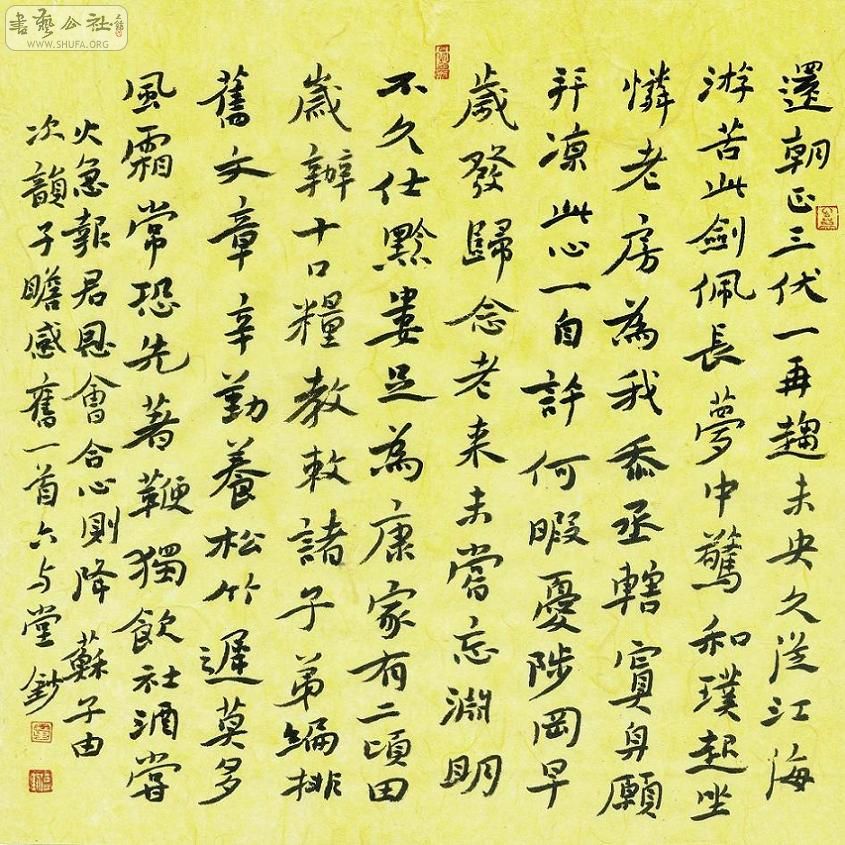 書藝公社
WWW.SHUFA.ORG
還朝正三伏一再趨未央久從江海
游苦此劍佩長夢中驚和璞起坐
憐老房為我忝丞轄寘身願
并涼此心一自許何暇憂陟岡早
歲發歸念老來未嘗忘淵明
不久仕黔婁足為康家有二頃田
歲辦十口糧教敕諸子弟編排
舊文章辛勤養松竹遲莫多
風霜常恐先著鞭獨飲社酒嘗
火急報君恩會合心則降 蘇子由
次韻子瞻感舊一首六与堂鈔